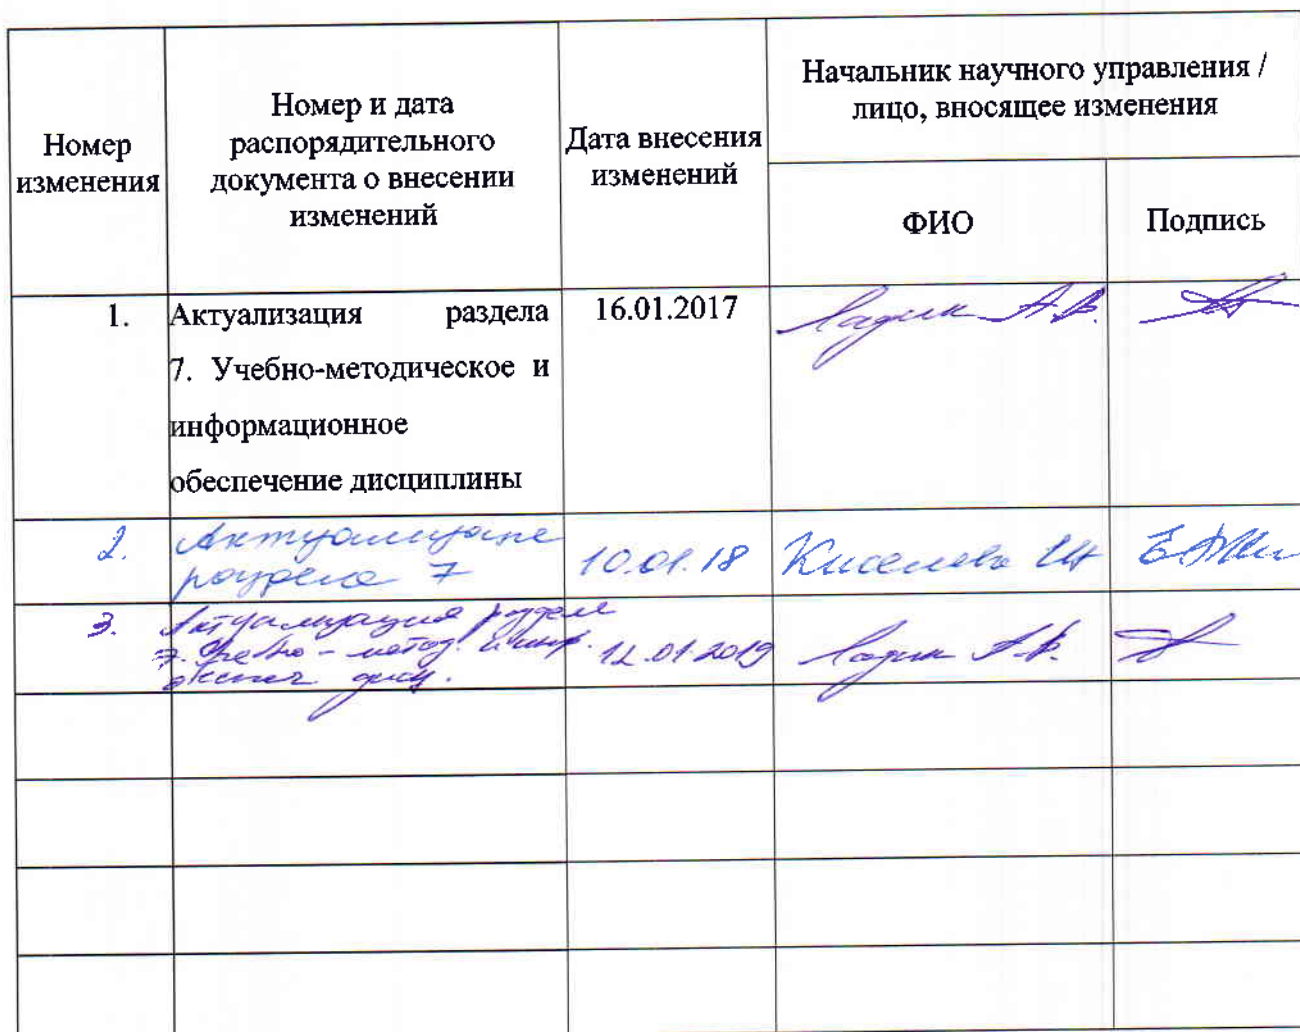 Номер
изменения
Номер и дата
распорядительного
документа о внесении
изменений
Дата внесения
изменений
Начальник научного управления /
лицо, вносящее изменения
ФИО
Подпись
1.
Актуализация раздела
7. Учебно-методическое и
информационное
обеспечение дисциплины
16.01.2017
Ладик А.В.
2.
Актуализация
раздела 7
10.01.18
Киселева
3.
Актуализация раздела
7. Учебно-метод. и инф.
обеспеч дисц.
12.01.2019
Ладик А.В.